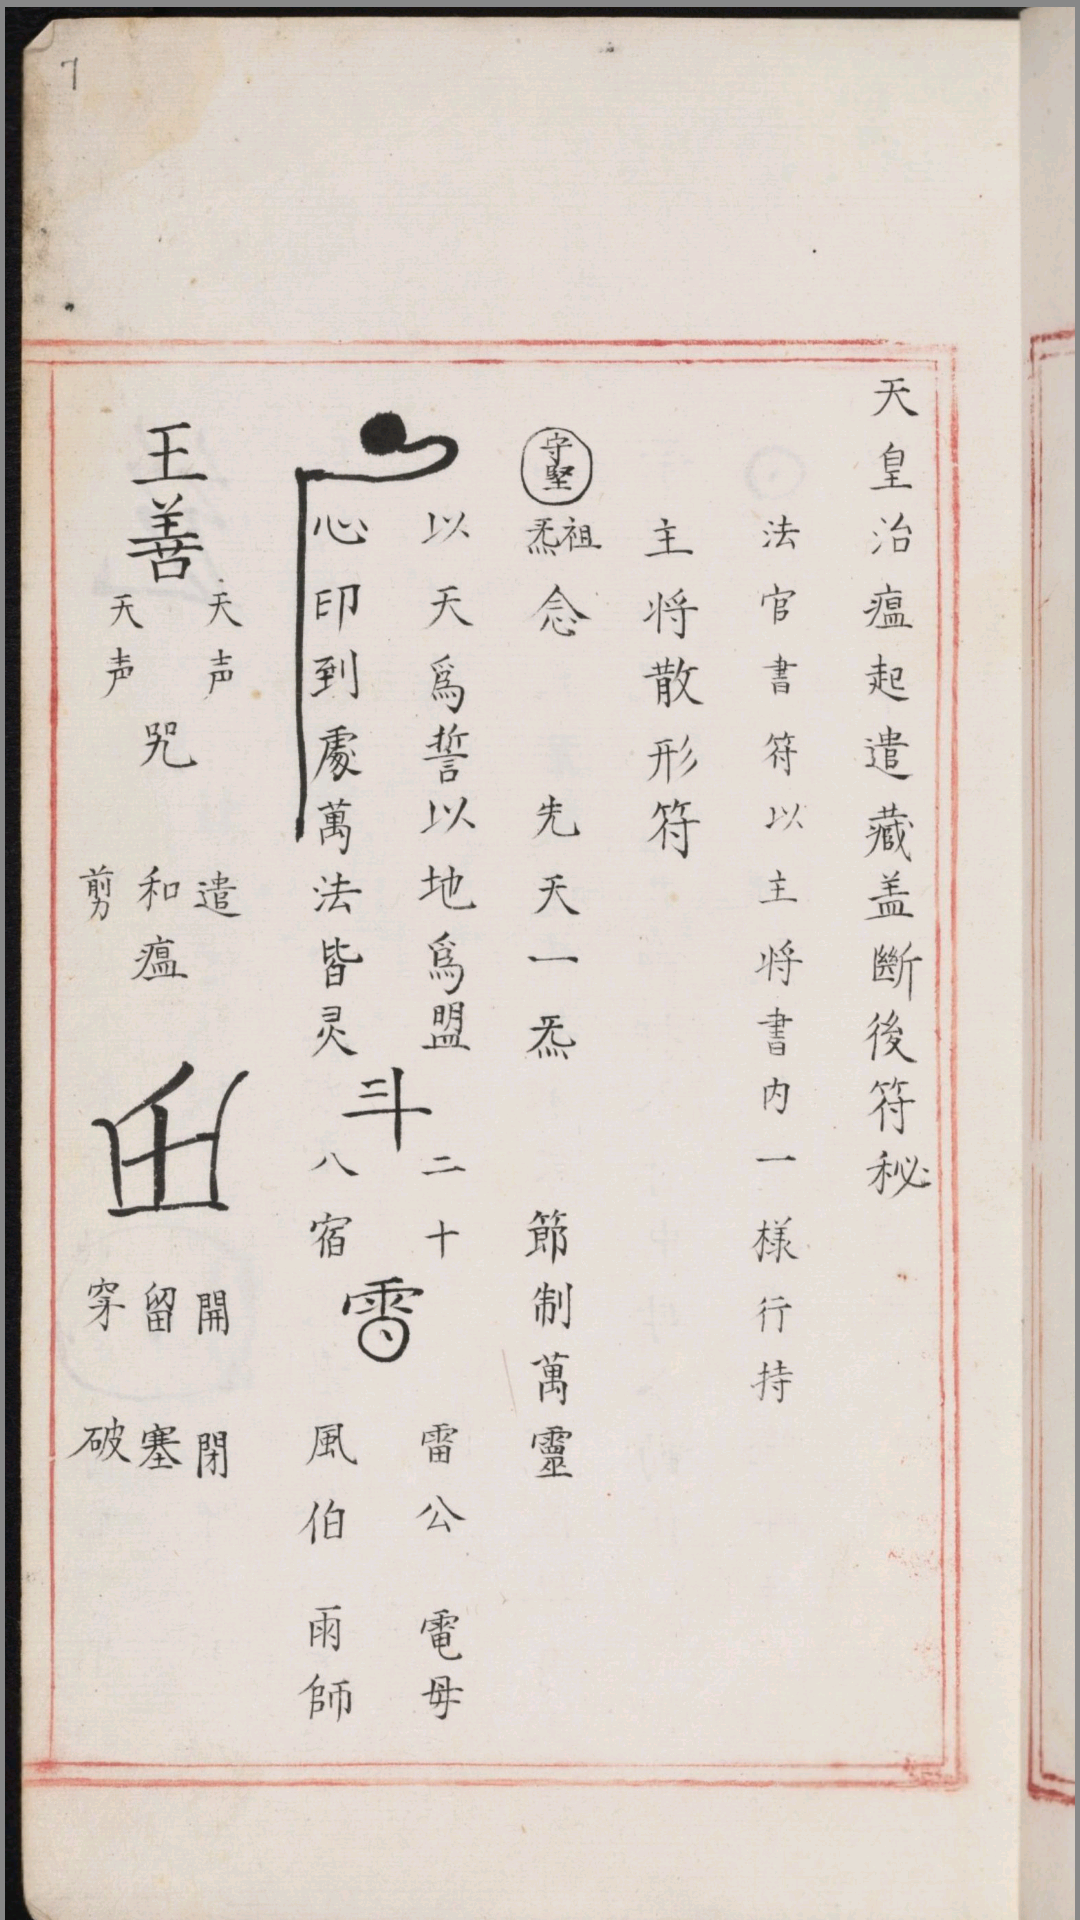 天皇治瘟起遣藏盖斷後符秘
法官書符以主将書内一様行持
主将散形符
守堅
祖炁念 先天一炁 節制萬靈
以天爲誓以地爲盟
心印到處萬法皆灵
斗
二十
八宿
雷公 電母
風伯 雨師
王善
天声
天声
咒
遣
和瘟
剪
開 閉
留 塞
穿 破
7